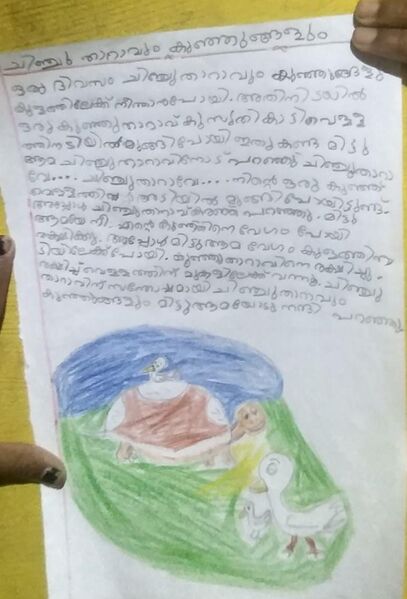 ചിഞ്ചു താറാവും കുഞ്ഞുങ്ങളും
ഒരു ദിവസം ചിഞ്ചുതാറാവും കുഞ്ഞുങ്ങളും
കുളത്തിലേക്ക് നീന്താൻപോയി. അതിനിടയിൽ
ഒരുകുഞ്ഞുതാറാവ് കുസൃതികാടിവെള്ള
ത്തിനടിയിൽമുങ്ങിപോയി ഇതുകണ്ട മിട്ടു
ആമ ചിഞ്ചുതാറാവിനോട് പറഞ്ഞു ചിഞ്ചുതാറാ
വേ.... ചിഞ്ചുതാറാവേ..... നിന്റെ ഒരു കുഞ്ഞ്
വെള്ളത്തിന്റെ അടിയിൽ മുങ്ങിപോയിട്ടുണ്ട്.
അപ്പോൾ ചിഞ്ചുതാറാവ് പറഞ്ഞു. മിട്ടു
ആമയെ നീ. എന്റെ കുഞ്ഞിനെ വേഗം പോയി
രക്ഷിക്കൂ. അപ്പോൾ മിട്ടു ആമ വേഗം കുളത്തിന
ടിയിലേക്ക്പോയി. കുഞ്ഞുതാറാവിനെ രക്ഷിച്ചു.
രക്ഷിച്ച് വെള്ളത്തിന് മുകളിലേക്ക് വന്നു. ചിഞ്ചു
താറാവിന് സന്തോഷമായി ചിഞ്ചുതാറാവും
കുഞ്ഞുങ്ങളും മിട്ടു ആമയോടു നന്ദി പറഞ്ഞു